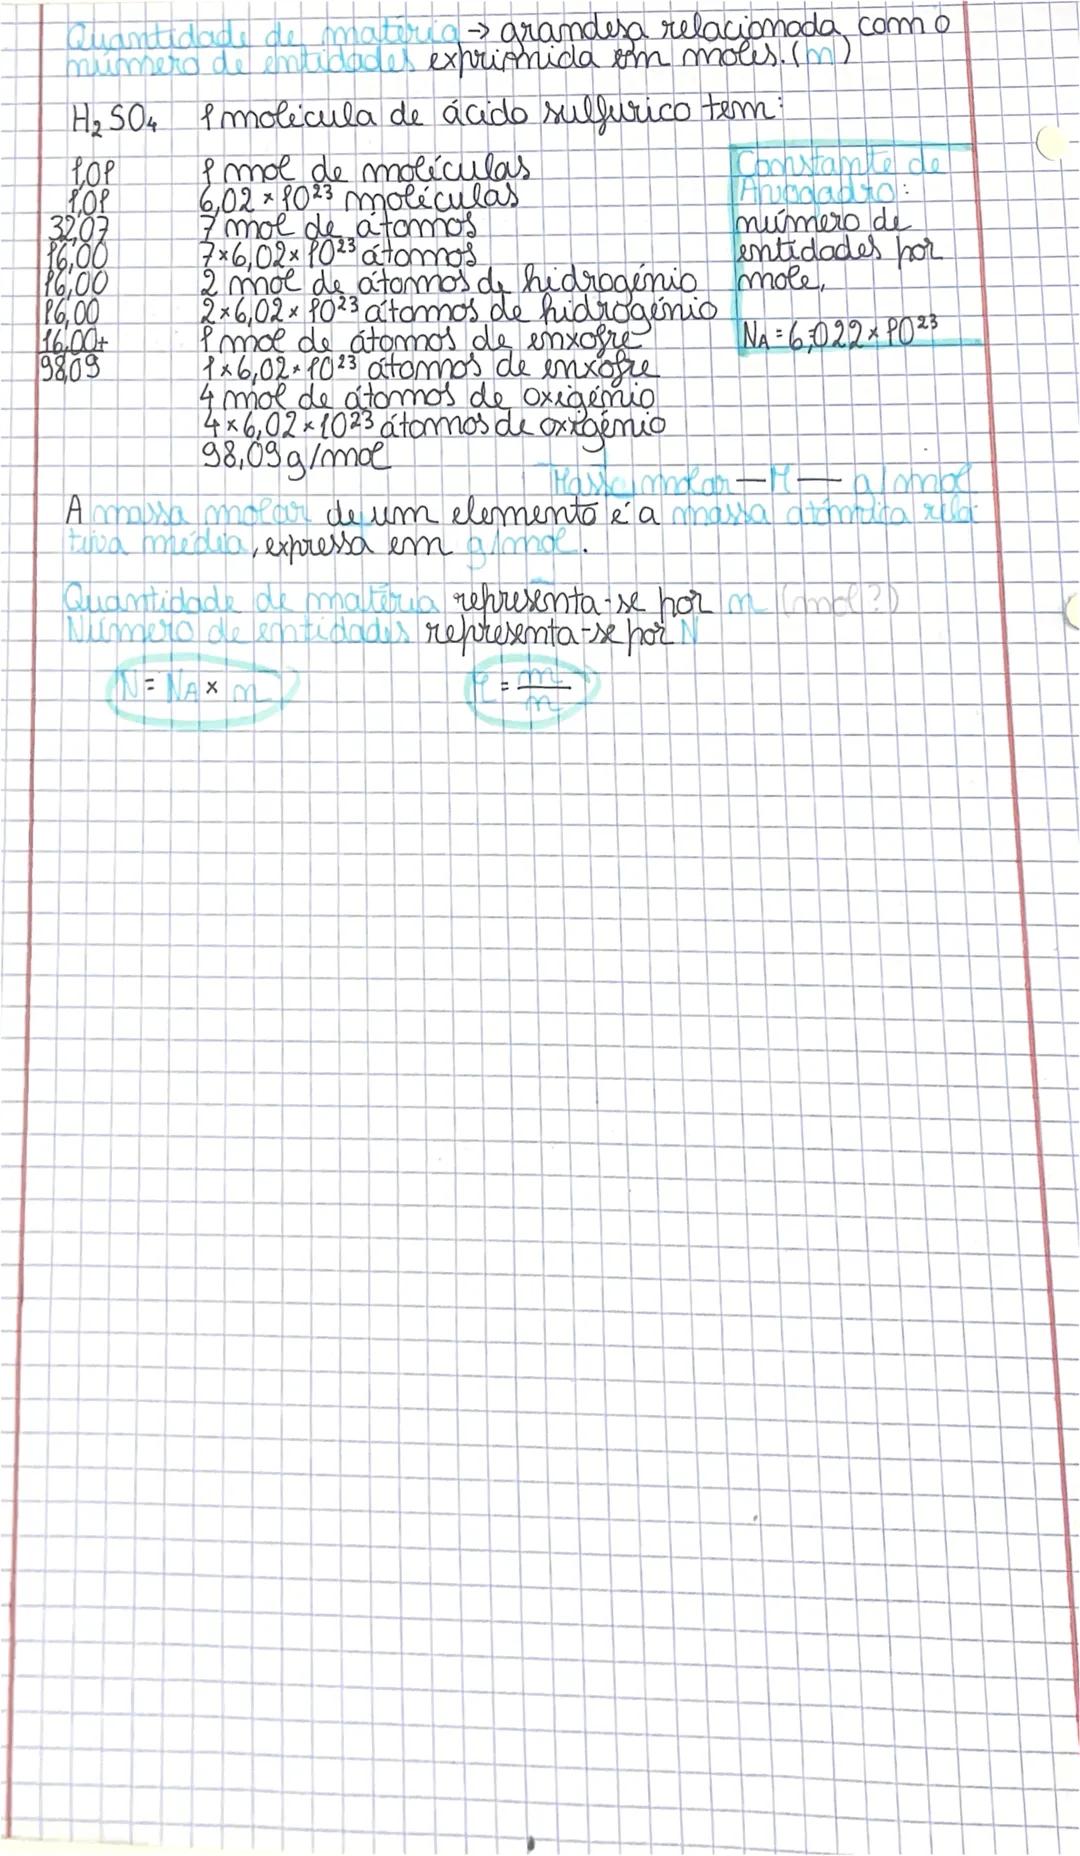 Quantidade de matéria → grandesa relacionada com o
número de entidades exprimida em moles. (n)
H₂SO₄ 1 molécula de ácido sulfurico tem:
1,01 1 mol de moléculas
1,01 6,02 × 10²³ moléculas
32,07 7 mol de átomos
16,00 7×6,02× 10²³ átomos
16,00 2 mol de átomos de hidrogénio
16,00 2×6,02× 10²³ átomos de hidrogénio
16,00+ 1 mol de átomos de enxofre
98,09 1×6,02×10²³ átomos de enxofre
4 mol de átomos de oxigénio
4×6,02×10²³ átomos de oxigénio
98,09 g/mol
Constante de
Avogadro:
número de
entidades por
mole,
NA = 6,022 × 10²³
molar — M — g/mol
A massa molar de um elemento é a massa atómica rela
tiva média, expressa em g/mol.
Quantidade de matéria representa-se por n (mol?)
Número de entidades representa-se por N
N = NA × n
= m/n